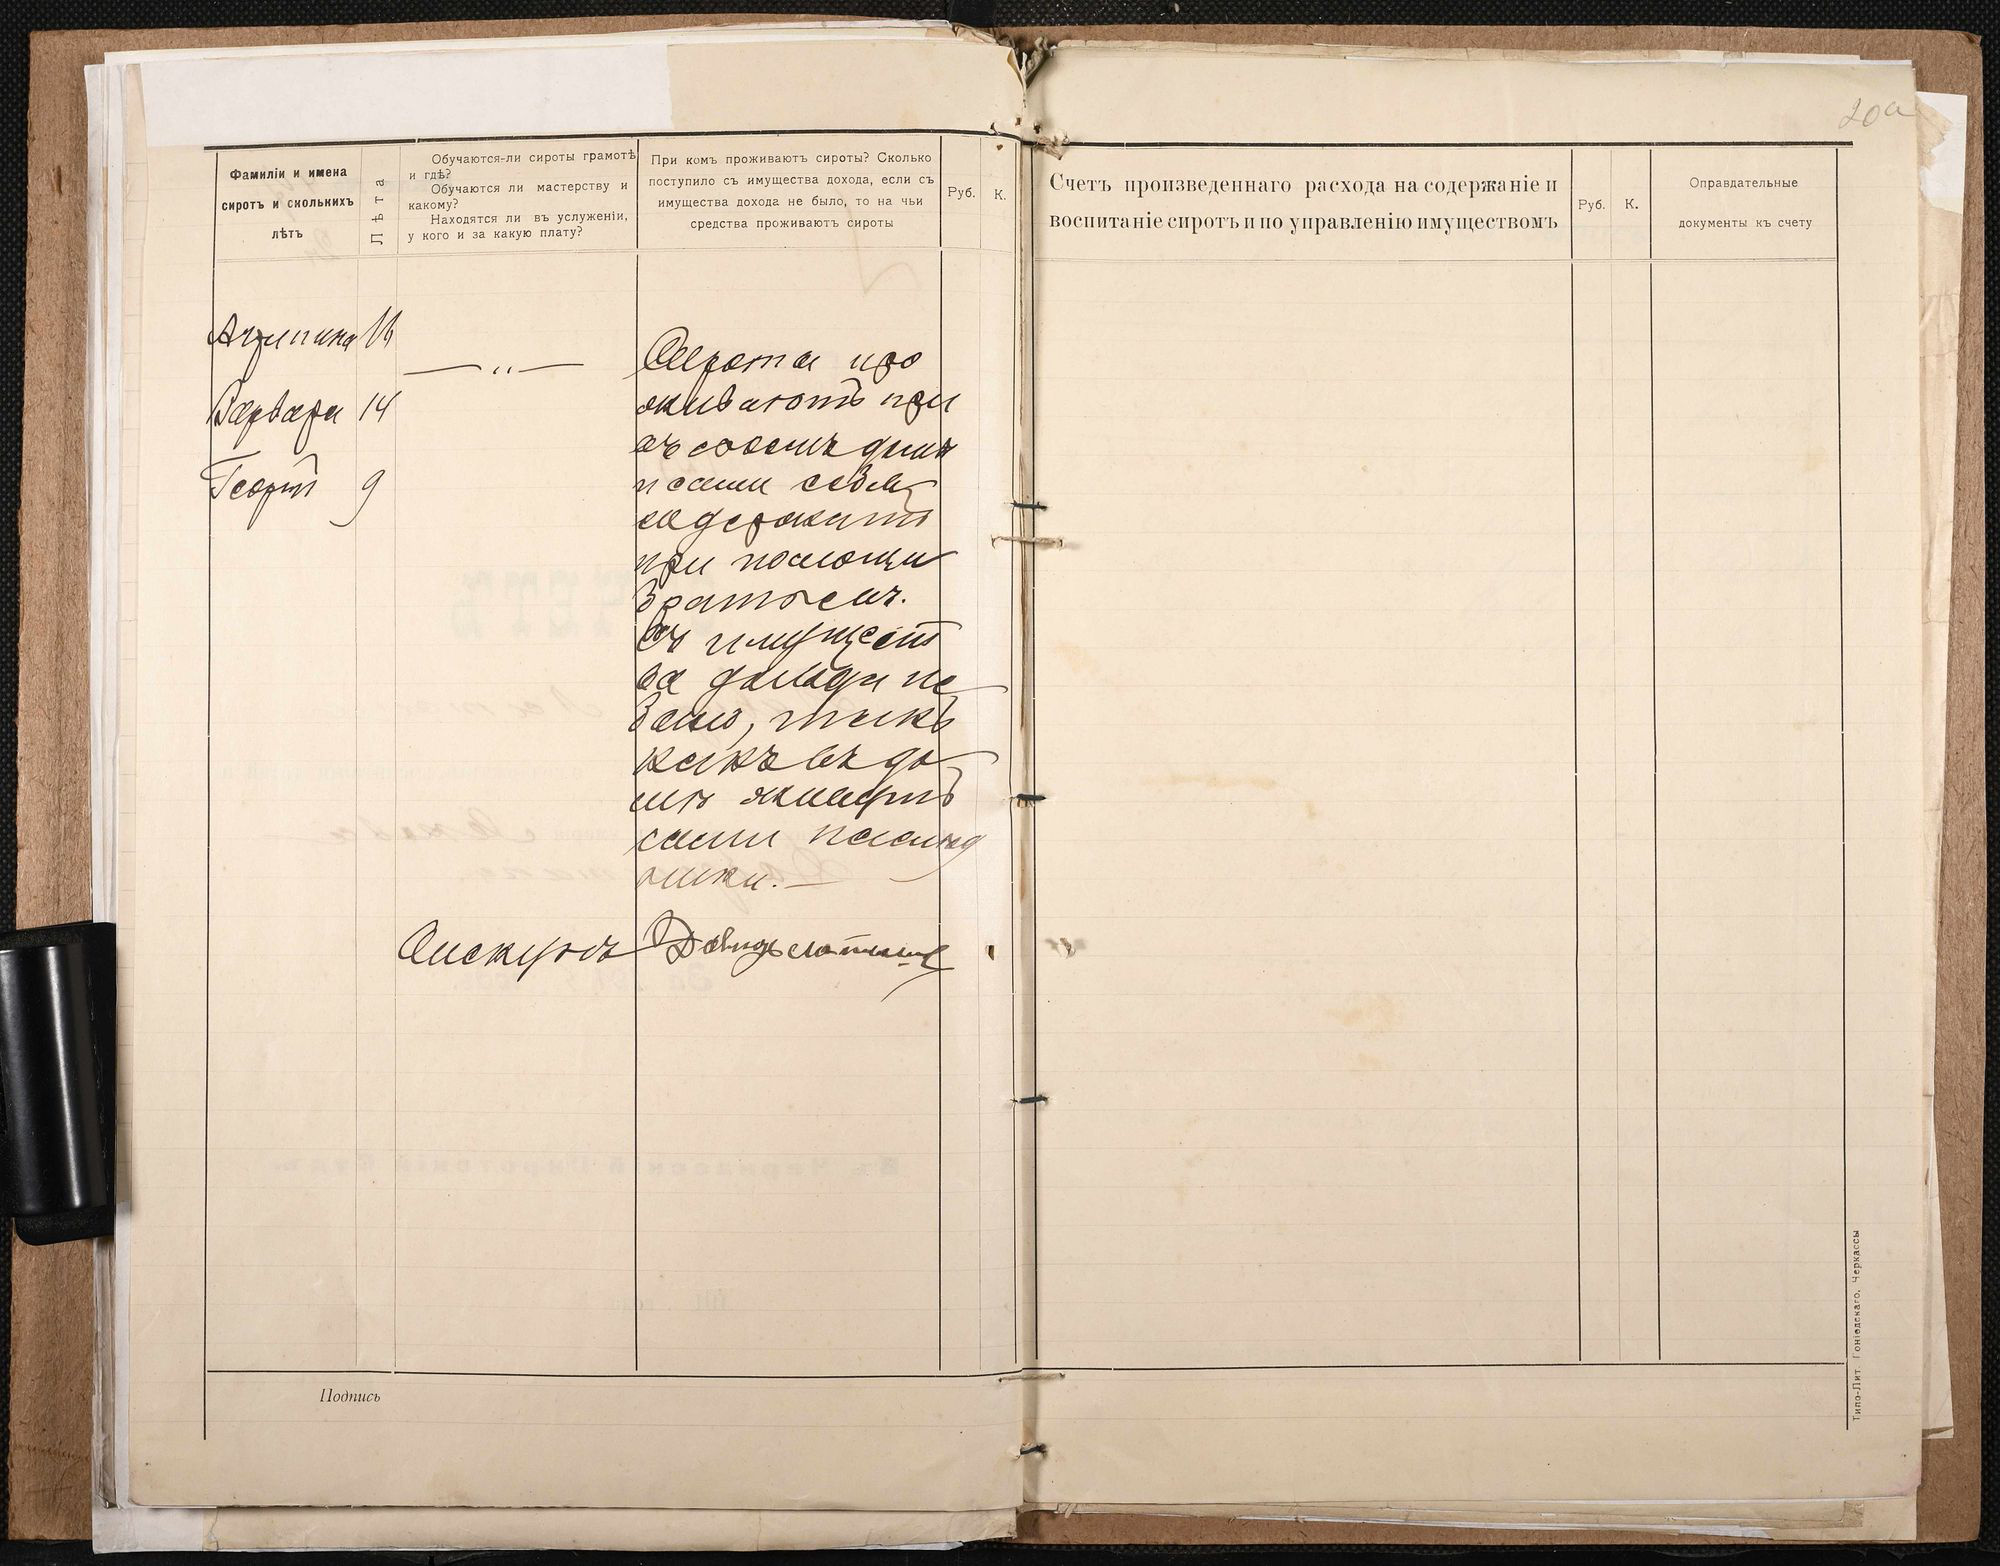 20а
Фамиліи и имена
сиротъ и сколькихъ
лѣтъ
Лѣта
Обучаются-ли сироты грамотѣ
и гдѣ?
Обучаются ли мастерству и
какому?
Находятся ли въ услуженіи,
у кого и за какую плату?
При комъ проживаютъ сироты? Сколько
поступило съ имущества дохода, если съ
имущества дохода не было, то на чьи
средства проживаютъ сироты
Руб.
К.
Агрипина 16
— „ —
Варвара 14
Георгій 9
Сироты про
живаютъ при
въ своемъ домѣ
и сами себя
содержатъ
при помощи
братьевъ.
Съ имущест
ва дохода не
было, такъ
какъ въ до
мѣ живутъ
сами наслѣд
ники. —
Опекунъ Давидъ
Подпись
Счетъ произведеннаго расхода на содержаніе и
воспитаніе сиротъ и по управленію имуществомъ
Руб.
К.
Оправдательные
документы къ счету
Типо-Лит. Гоніодскаго, Черкассы